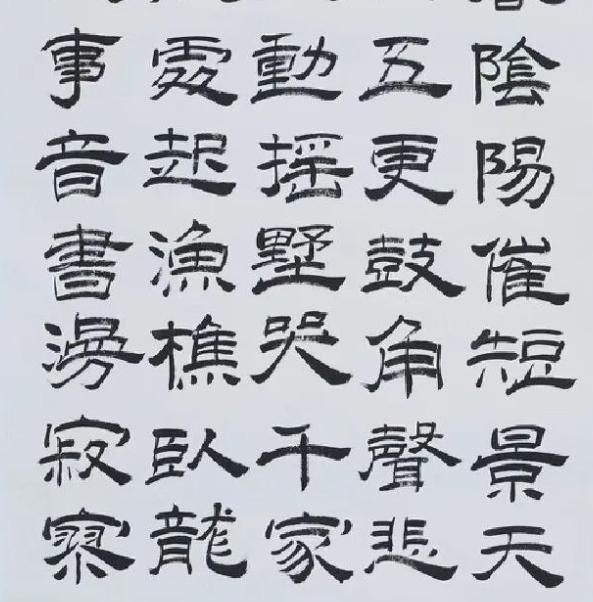 陰陽催短景天
五更鼓角聲悲
動摇墅哭千家
處起漁樵臥龍
事音書漫寂寥